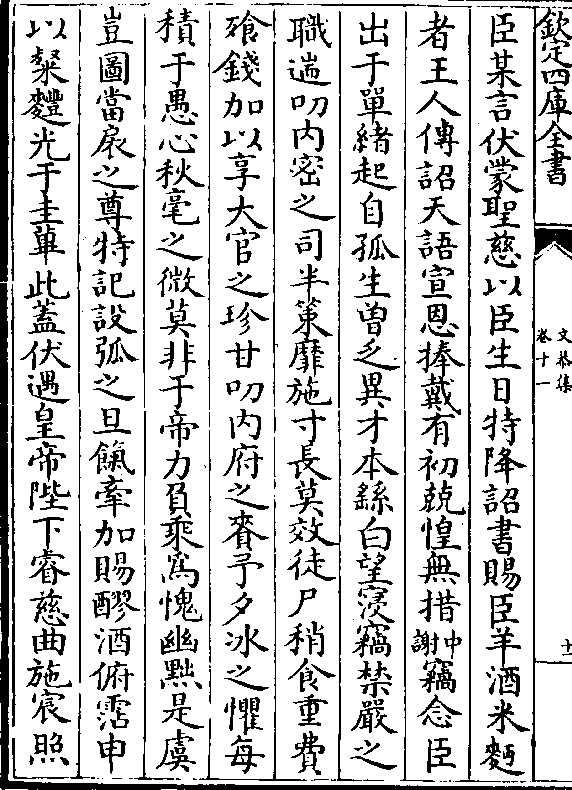 欽定四庫全書
文恭集
卷十一
十一
臣某言伏蒙聖慈以臣生日特降詔書賜臣羊酒米麪
者王人傳詔天語宣恩捧戴有初兢惶無措中謝竊念臣
出于單緒起自孤生曽乏異才本繇白望寖竊禁嚴之
職遄叨内密之司半策靡施寸長莫效徒尸稍食重費
飱錢加以享大官之珍甘叨内府之賚予夕冰之懼每
積于愚心秋毫之微莫非于帝力負乘爲愧幽黙是虞
豈圖當扆之尊特記設弧之旦餼牽加賜醪酒俯霑申
以粲䴹光于圭蓽此蓋伏遇皇帝陛下睿慈曲施宸照